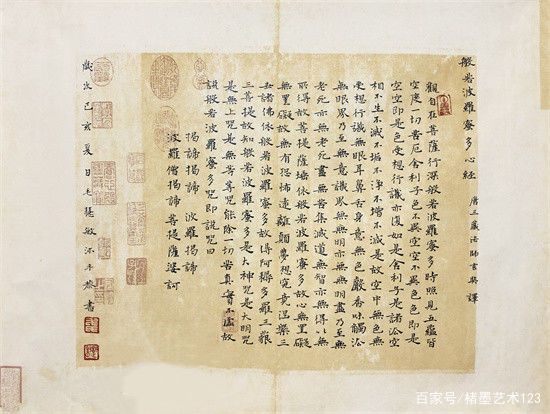 般若波羅蜜多心經
唐三藏法師玄奘譯
觀自在菩薩行深般若波羅蜜多時照見五蘊皆
空度一切苦厄舍利子色不異空空不異色色即是
空空即是色受想行識亦復如是舍利子是諸法空
相不生不滅不垢不淨不增不減是故空中無色無
受想行識無眼耳鼻舌身意無色聲香味觸法
無眼界乃至無意識界無無明亦無無明盡乃至無
老死亦無老死盡無苦集滅道無智亦無得以無
所得故菩提薩埵依般若波羅蜜多故心無罣礙
無罣礙故無有恐怖遠離顛夢想究竟涅槃三
世諸佛依般若波羅蜜多故得阿耨多羅三藐
三菩提故知般若波羅蜜多是大神咒是大明咒
是無上咒是無等等咒能除一切苦真實不虛故
說般若波羅蜜多咒即說咒曰
揭諦揭諦 波羅揭諦
波羅僧揭諦菩提薩婆訶
歲次己亥夏日毛慧敏沐手恭書
百家号/楮墨艺术123